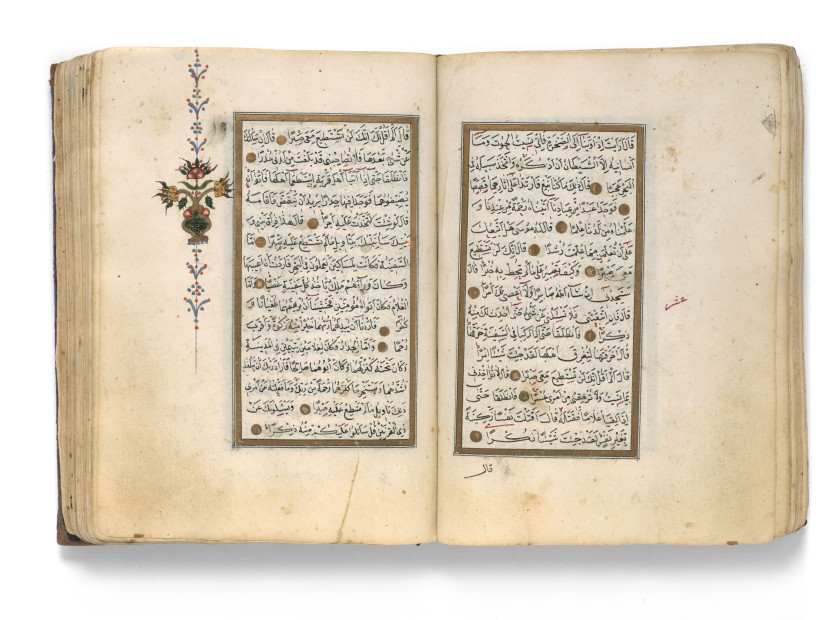 قال ارايت اذ اوينا الى الصخرة فاني نسيت الحوت وما
انسانيه الا الشيطان ان اذكره واتخذ سبيله في
البحر عجبا قال ذلك ما كنا نبغ فارتدا على اثارهما قصصا
فوجدا عبدا من عبادنا اتيناه رحمة من عندنا و
علمناه من لدنا علما قال له موسى هل اتبعك
على ان تعلمن مما علمت رشدا قال انك لن تستطيع
معي صبرا وكيف تصبر على ما لم تحط به خبرا قال
ستجدني ان شاء الله صابرا ولا اعصي لك امرا
قال فان اتبعتني فلا تسئلني عن شيء حتى احدث لك منه
ذكرا فانطلقا حتى اذا ركبا في السفينة خرقها
قال اخرقتها لتغرق اهلها لقد جئت شيئا امرا
قال الم اقل انك لن تستطيع معي صبرا قال لا تؤاخذني
بما نسيت ولا ترهقني من امري عسرا فانطلقا حتى
اذا لقيا غلاما فقتله قال اقتلت نفسا زكية
بغير نفس لقد جئت شيئا نكرا
قال
عشر
قال الم اقل لك انك لن تستطيع معي صبرا قال ان سالتك
عن شيء بعدها فلا تصاحبني قد بلغت من لدني عذرا
فانطلقا حتى اذا اتيا اهل قرية استطعما اهلها فابوا ان
يضيفوهما فوجدا فيها جدارا يريد ان ينقض فاقامه
قال لو شئت لتخذت عليه اجرا قال هذا فراق بيني و
بينك سانبئك بتاويل ما لم تستطع عليه صبرا اما
السفينة فكانت لمساكين يعملون في البحر فاردت ان اعيبها
وكان وراءهم ملك ياخذ كل سفينة غصبا واما
الغلام فكان ابواه مؤمنين فخشينا ان يرهقهما طغيانا و
كفرا فاردنا ان يبدلهما ربهما خيرا منه زكوة واقرب
رحما واما الجدار فكان لغلامين يتيمين في المدينة
وكان تحته كنز لهما وكان ابوهما صالحا فاراد ربك ان يبلغا
اشدهما ويستخرجا كنزهما رحمة من ربك وما فعلته عن امري
ذلك تاويل ما لم تسطع عليه صبرا ويسئلونك عن
ذي القرنين قل ساتلوا عليكم منه ذكرا